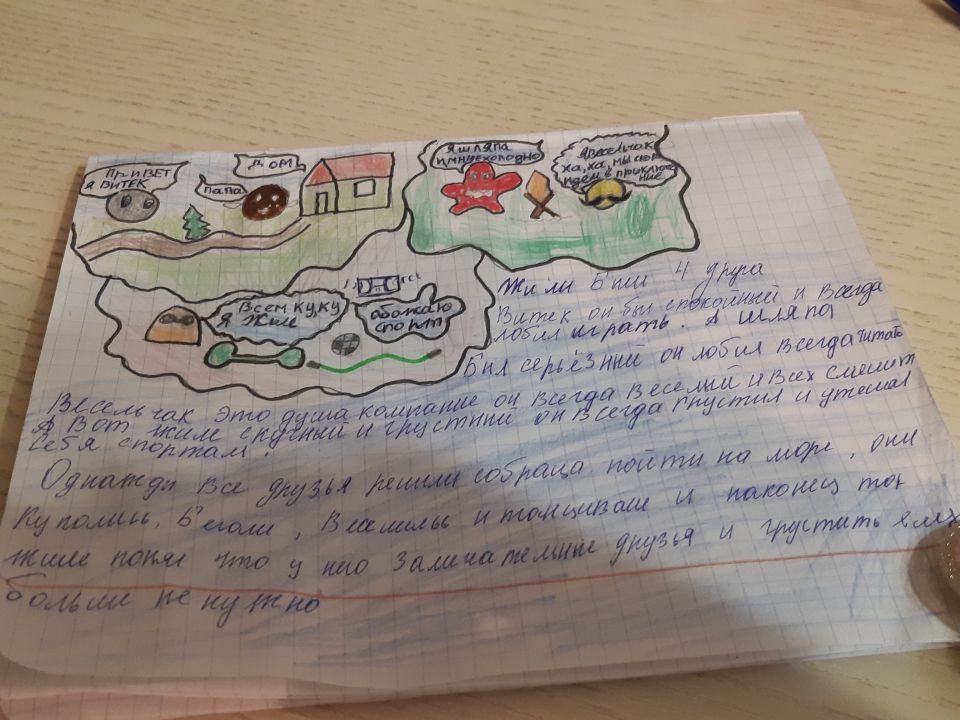 ПРИВЕТ
Я ВИТЕК
ПАПА
ДОМ
Я ШЛЯПА
И МНЕ ХОЛОДНО
Я ВЕСЕЛЬЧАК
ХА, ХА, МЫ
ИДЕМ В ПРИКЛЮЧЕ
НИЕ
ВСЕМ КУКУ
Я ЖИЛЕ
ОБОЖАЮ
СПОРТ
Жили Били 4 друга
Витек он бил спокойний и Всегда
лобил играть. А шляпа
Бил серьёзний он лобил Всегда читать
Весельчак это душа компание он Всегда Веселый и Всех смешит
А Вот жиле скучний и грустний он Всегда грустил и утешал
себя спортам.
Однажди Все друзья решили собраца пойти на море, они
купались, Бегали, Веселились и танцивали и наконец то
жиле понял что у него замичательние друзья и грустить ему
больши не нужно